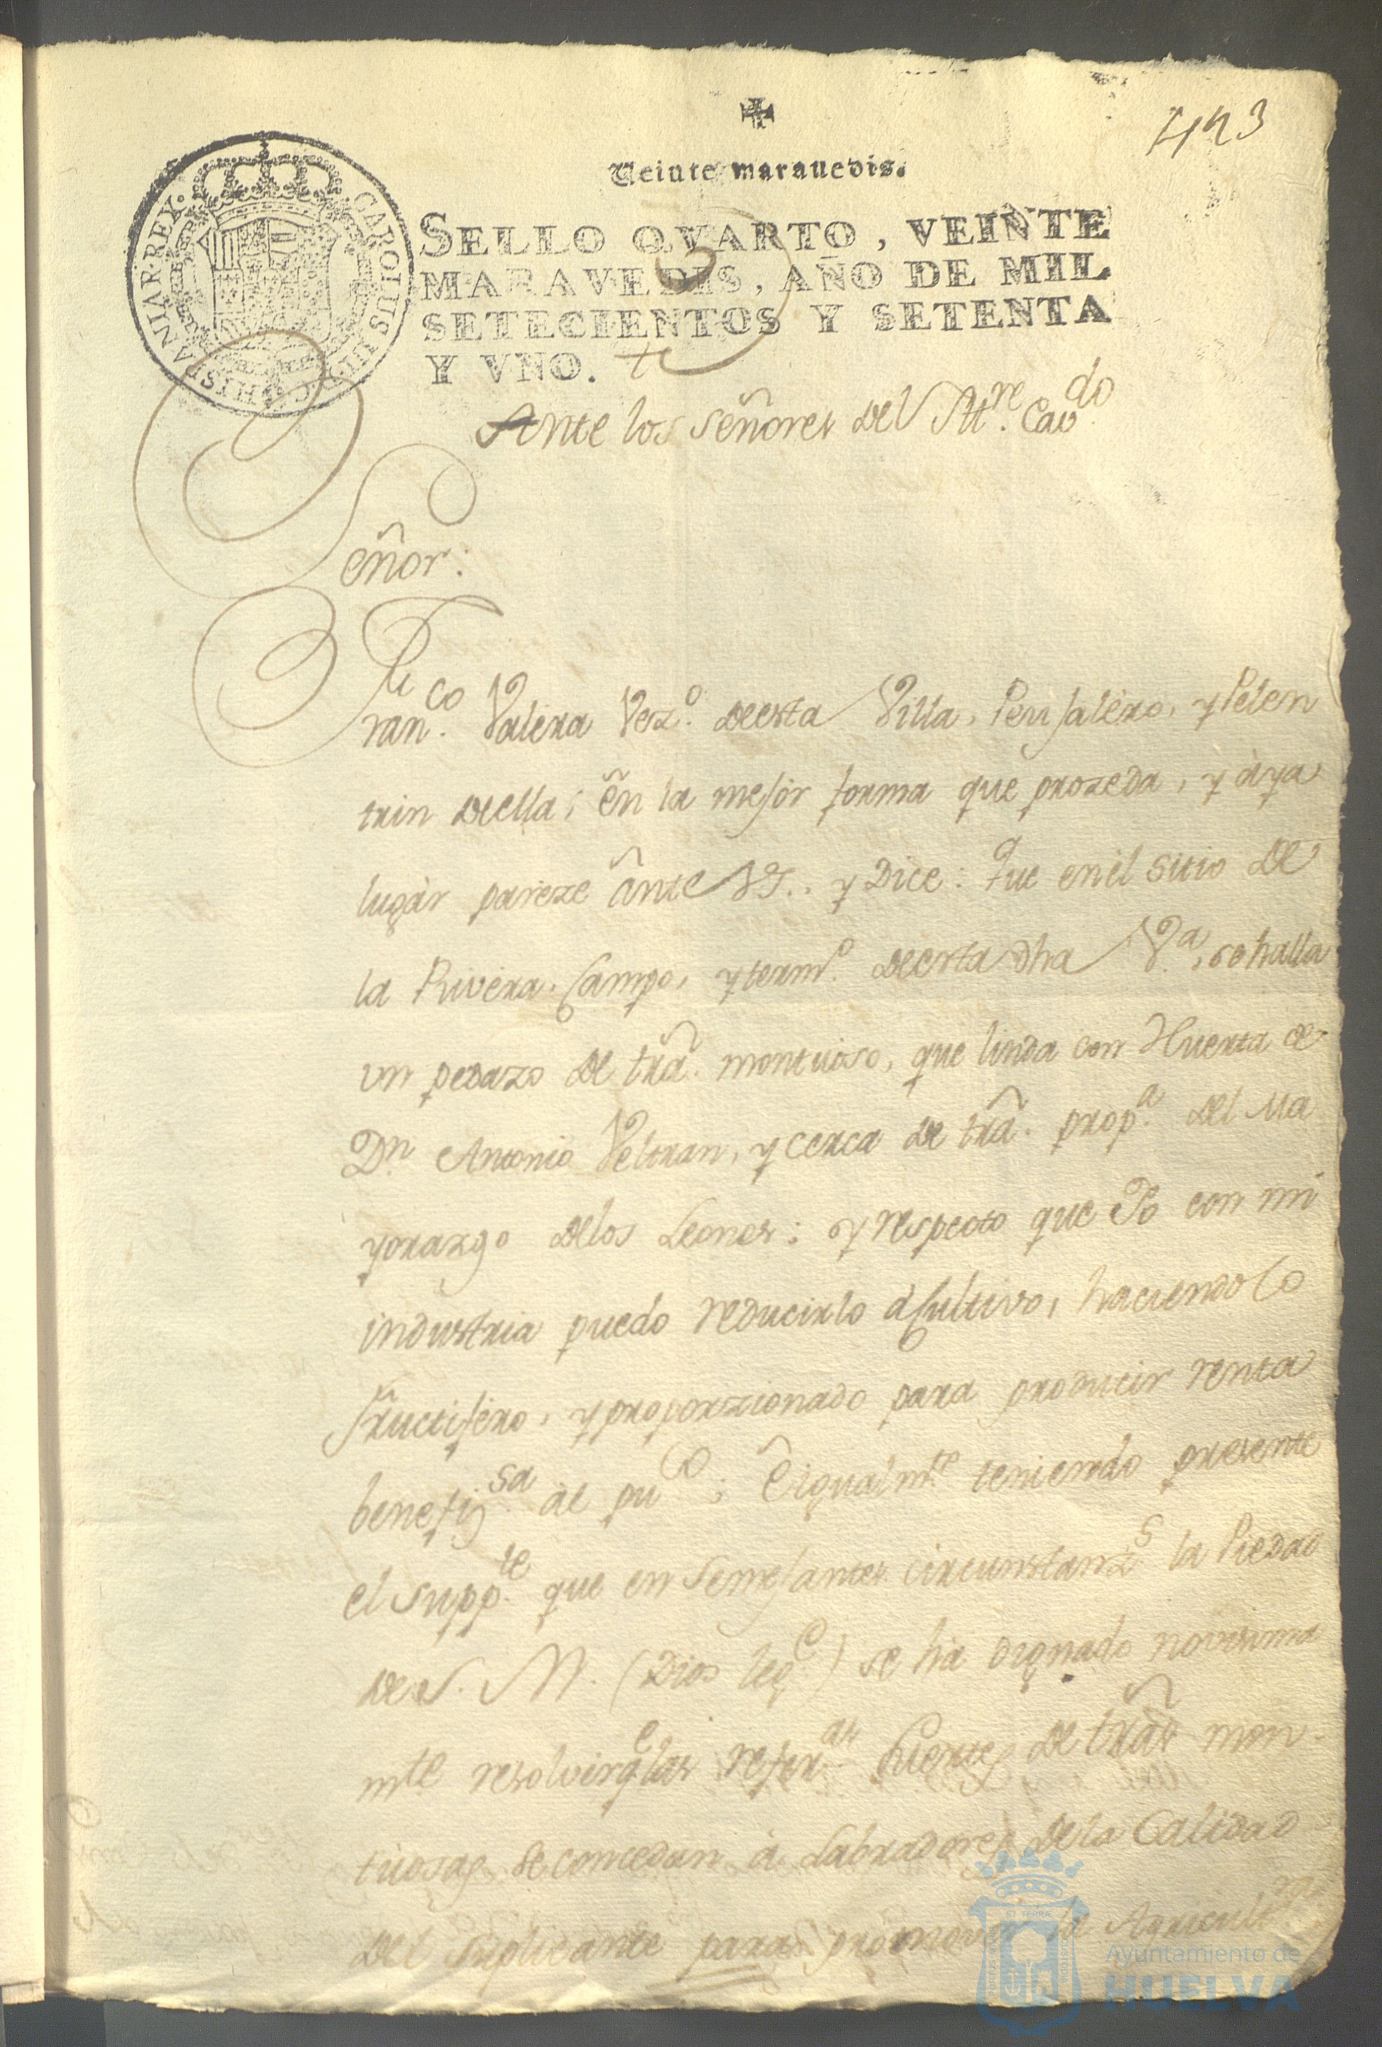 423
Veinte maravedis.
SELLO QVARTO, VEINTE
MARAVEDIS, AÑO DE MIL
SETECIENTOS Y SETENTA
Y VNO.
CAROLUS III D G HISPANIAR REX
Ante los señores del Itt.re Cav.do
Señor:
Fran.co Valera Vez.o de esta Villa, Peujalero, y Pelen
trin de ella, en la mejor forma que prozeda, y aya
lugar pareze ante VS., y Dice: que en el sitio de
la Rivera, Campo, y term.o de esta dha V.a, se halla
un pedazo de trã. montuoso, que linda con Huerta de
Dn. Antonio Veltran, y cerca de trã. prop.a del Ma
yorazgo de los Leones; y respecto que Yo con mi
industria puedo reducirlo a Cultivo, haciendolo
fructifero, y proporzionado para producir renta
benefiz.sa al pu.co; E igualm.te teniendo presente
el supp.te que en semejantes circunstanz.s la Piedad
de S. M. (Dios le g.e) se ha dignado novisima
mte resolver q.e las refer.as suertes de trãs mon-
tuosas se concedan à Labradores de la Calidad
del suplicante para promover la Agricult.ra
Ayuntamiento de
HUELVA